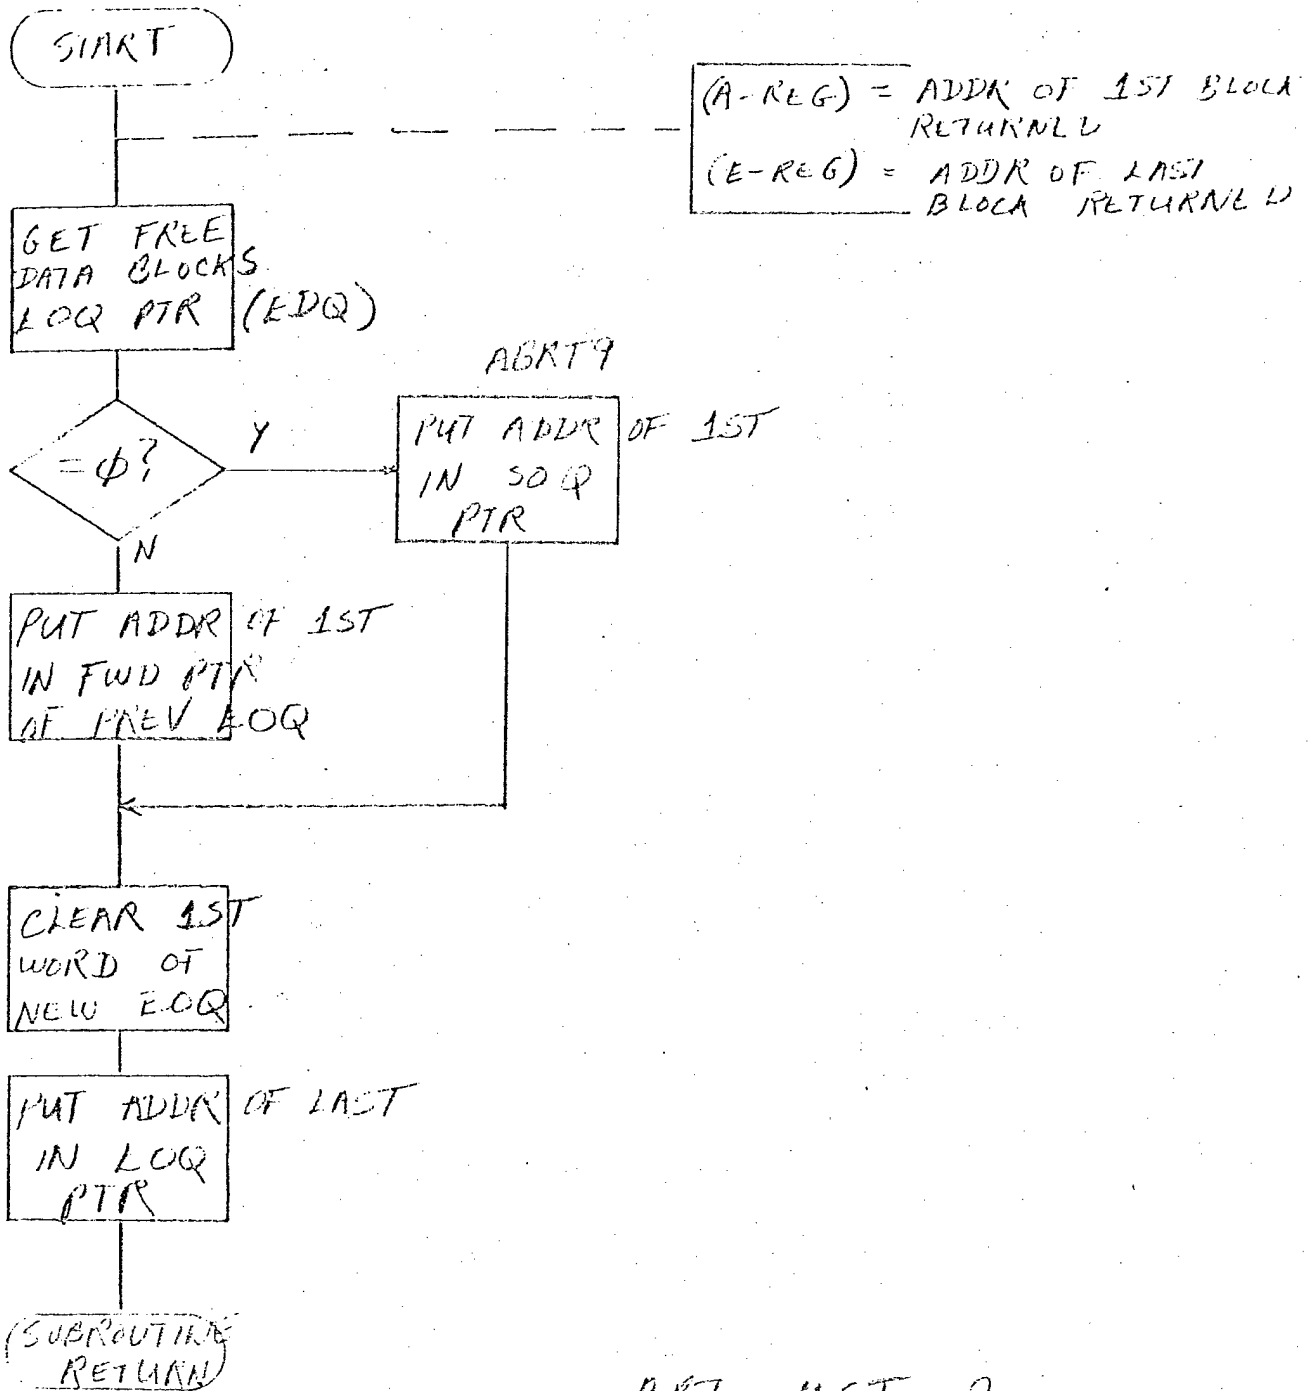 START
(A-REG) = ADDR OF 1ST BLOCK
RETURNED
(E-REG) = ADDR OF LAST
BLOCK RETURNED
GET FREE
DATA BLOCKS
EOQ PTR (EDQ)
= φ?
Y
N
ABRT9
PUT ADDR OF 1ST
IN SOQ
PTR
PUT ADDR OF 1ST
IN FWD PTR
OF PREV EOQ
CLEAR 1ST
WORD OF
NEW EOQ
PUT ADDR OF LAST
IN EOQ
PTR
(SUBROUTINE
RETURN)